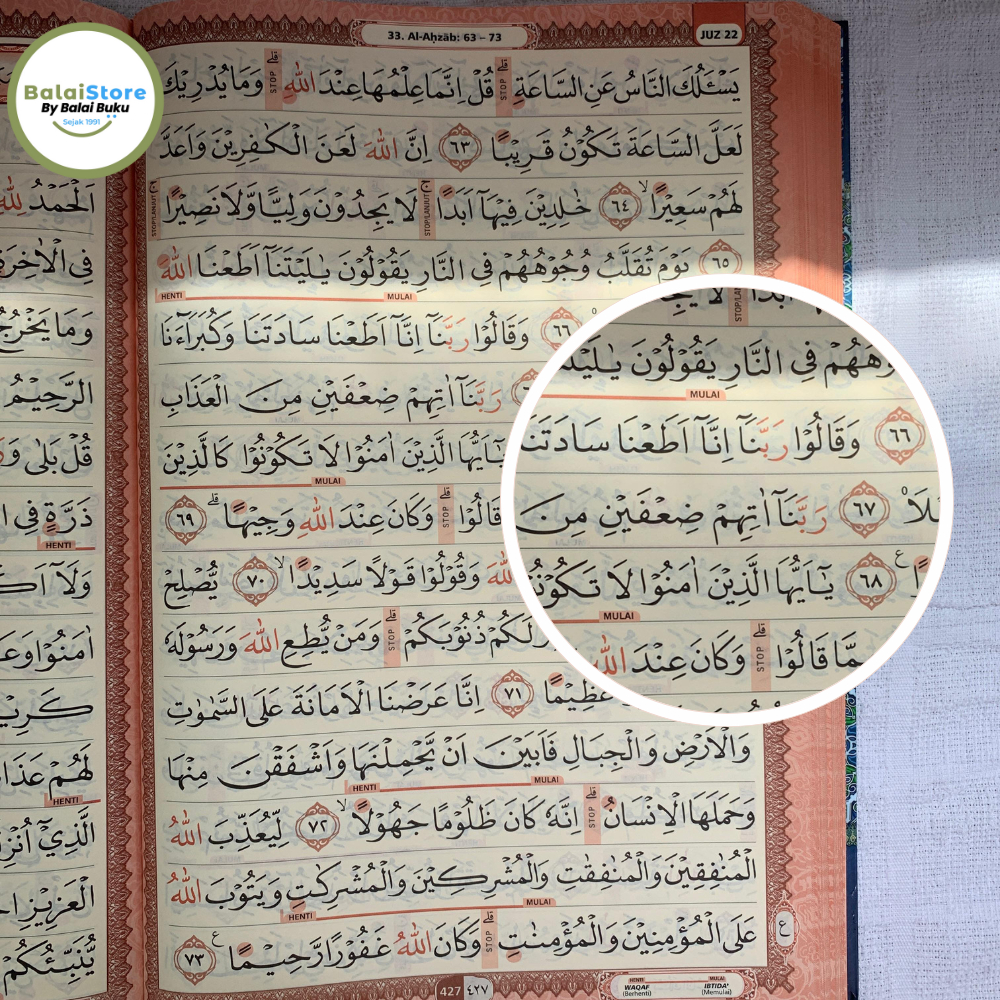 BalaiStore
By Balai Buku
Sejak 1991
33. Al-Aḥzāb: 63 – 73
JUZ 22
يَسْـَٔلُكَ النَّاسُ عَنِ السَّاعَةِۗ قُلْ اِنَّمَا عِلْمُهَا عِنْدَ اللّٰهِۗ وَمَا يُدْرِيْكَ
STOP STOP
لَعَلَّ السَّاعَةَ تَكُوْنُ قَرِيْبًا ٦٣ اِنَّ اللّٰهَ لَعَنَ الْكٰفِرِيْنَ وَاَعَدَّ
لَهُمْ سَعِيْرًاۙ ٦٤ خٰلِدِيْنَ فِيْهَآ اَبَدًاۚ لَا يَجِدُوْنَ وَلِيًّا وَّلَا نَصِيْرًاۚ
STOP/LANJUT STOP/LANJUT
٦٥ يَوْمَ تُقَلَّبُ وُجُوْهُهُمْ فِى النَّارِ يَقُوْلُوْنَ يٰلَيْتَنَآ اَطَعْنَا اللّٰهَ
MULAI HENTI
٦٦ وَقَالُوْا رَبَّنَآ اِنَّآ اَطَعْنَا سَادَتَنَا وَكُبَرَاۤءَنَا
رَبَّنَآ اٰتِهِمْ ضِعْفَيْنِ مِنَ الْعَذَابِ
يٰٓاَيُّهَا الَّذِيْنَ اٰمَنُوْا لَا تَكُوْنُوْا كَالَّذِيْنَ
MULAI
قَالُوْاۗ وَكَانَ عِنْدَ اللّٰهِ وَجِيْهًاۗ ٦٩
STOP
اللّٰهَ وَقُوْلُوْا قَوْلًا سَدِيْدًاۙ ٧٠ يُّصْلِحْ
لَكُمْ ذُنُوْبَكُمْۗ وَمَنْ يُّطِعِ اللّٰهَ وَرَسُوْلَهٗ
STOP
عَظِيْمًا ٧١ اِنَّا عَرَضْنَا الْاَمَانَةَ عَلَى السَّمٰوٰتِ
وَالْاَرْضِ وَالْجِبَالِ فَاَبَيْنَ اَنْ يَّحْمِلْنَهَا وَاَشْفَقْنَ مِنْهَا
MULAI HENTI
وَحَمَلَهَا الْاِنْسَانُۗ اِنَّهٗ كَانَ ظَلُوْمًا جَهُوْلًاۙ ٧٢ لِّيُعَذِّبَ اللّٰهُ
STOP
الْمُنٰفِقِيْنَ وَالْمُنٰفِقٰتِ وَالْمُشْرِكِيْنَ وَالْمُشْرِكٰتِ وَيَتُوْبَ اللّٰهُ
MULAI HENTI
عَلَى الْمُؤْمِنِيْنَ وَالْمُؤْمِنٰتِۗ وَكَانَ اللّٰهُ غَفُوْرًا رَّحِيْمًا ࣖ ٧٣
STOP
ع
427 ٤٢٧
HENTI MULAI
WAQAF IBTIDA'
(Berhenti) (Memulai)
يَقُوْلُوْنَ فِى النَّارِ
MULAI
٦٦ وَقَالُوْا رَبَّنَآ اِنَّآ اَطَعْنَا سَادَتَنَا
٦٧ رَبَّنَآ اٰتِهِمْ ضِعْفَيْنِ مِنَ
٦٨ يٰٓاَيُّهَا الَّذِيْنَ اٰمَنُوْا لَا
MULAI
قَالُوْاۗ وَكَانَ عِنْدَ اللّٰهِ
STOP
اَلْحَمْدُ لِلّٰهِ
فِى الْاٰخِرَةِ
وَمَا يَخْرُجُ
الرَّحِيْمُ
قُلْ بَلٰى
ذَرَّةٍ فِى
HENTI
وَلَآ
اٰمَنُوْا
لَهُمْ
HENTI
الَّذِيْٓ
الْعَزِيْزِ
يُّنَبِّئُكُمْ